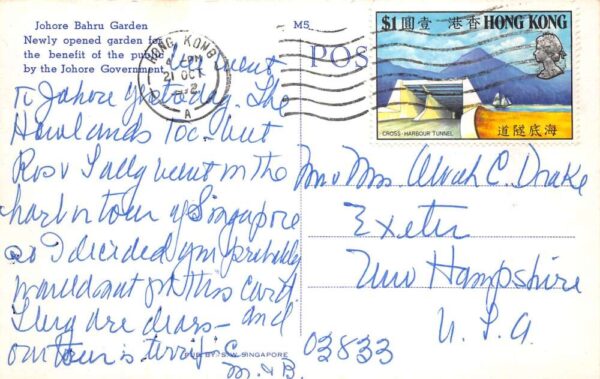 Johore Bahru Garden
Newly opened garden for
the benefit of the public
by the Johore Government.
M5
POS
HONG KONG
PM
21 OCT
A
$1 圓壹 港香 HONG KONG
CROSS-HARBOUR TUNNEL
道隧底海
We went
to Johore yesterday. The
Howlands too - but
Ros & Sally went in the
harbor tour of Singapore
so I decided you probably
would want this card.
They are dears - and
our tour is terrific.
M. & B.
PUB. BY: S.W. SINGAPORE
Mr & Mrs. Alvah C. Drake
Exeter
New Hampshire
U.S.A.
03833